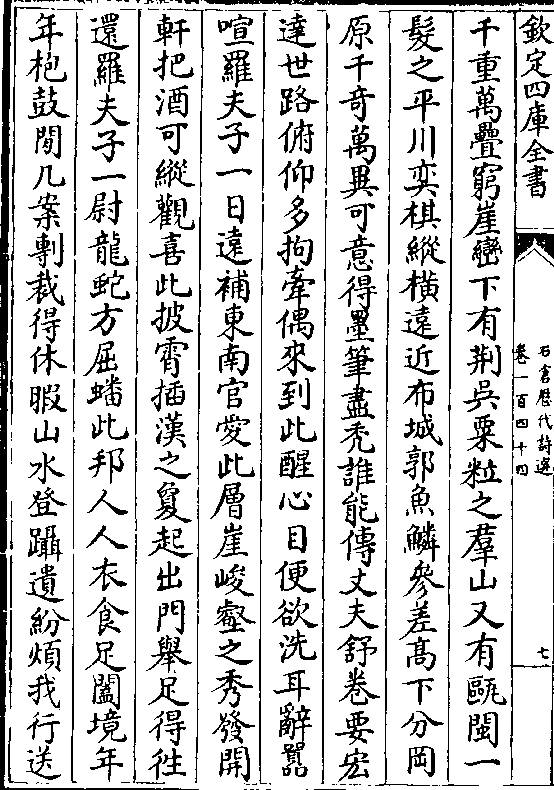 欽定四庫全書
石倉歷代詩選
卷一百四十四
七
千重萬疊窮崖巒下有荆吳粟粒之羣山又有甌閩一
髮之平川奕棋縱橫遠近布城郭魚鱗參差髙下分岡
原千奇萬異可意得墨筆盡禿誰能傳丈夫舒卷要宏
達世路俯仰多拘牽偶來到此醒心目便欲洗耳辭囂
喧羅夫子一日遠補東南官愛此層崖峻壑之秀發開
軒把酒可縱觀喜此披霄插漢之敻起出門舉足得徃
還羅夫子一尉龍蛇方屈蟠此邦人人衣食足闔境年
年枹鼓閒几案剸裁得休暇山水登躡遺紛煩我行送